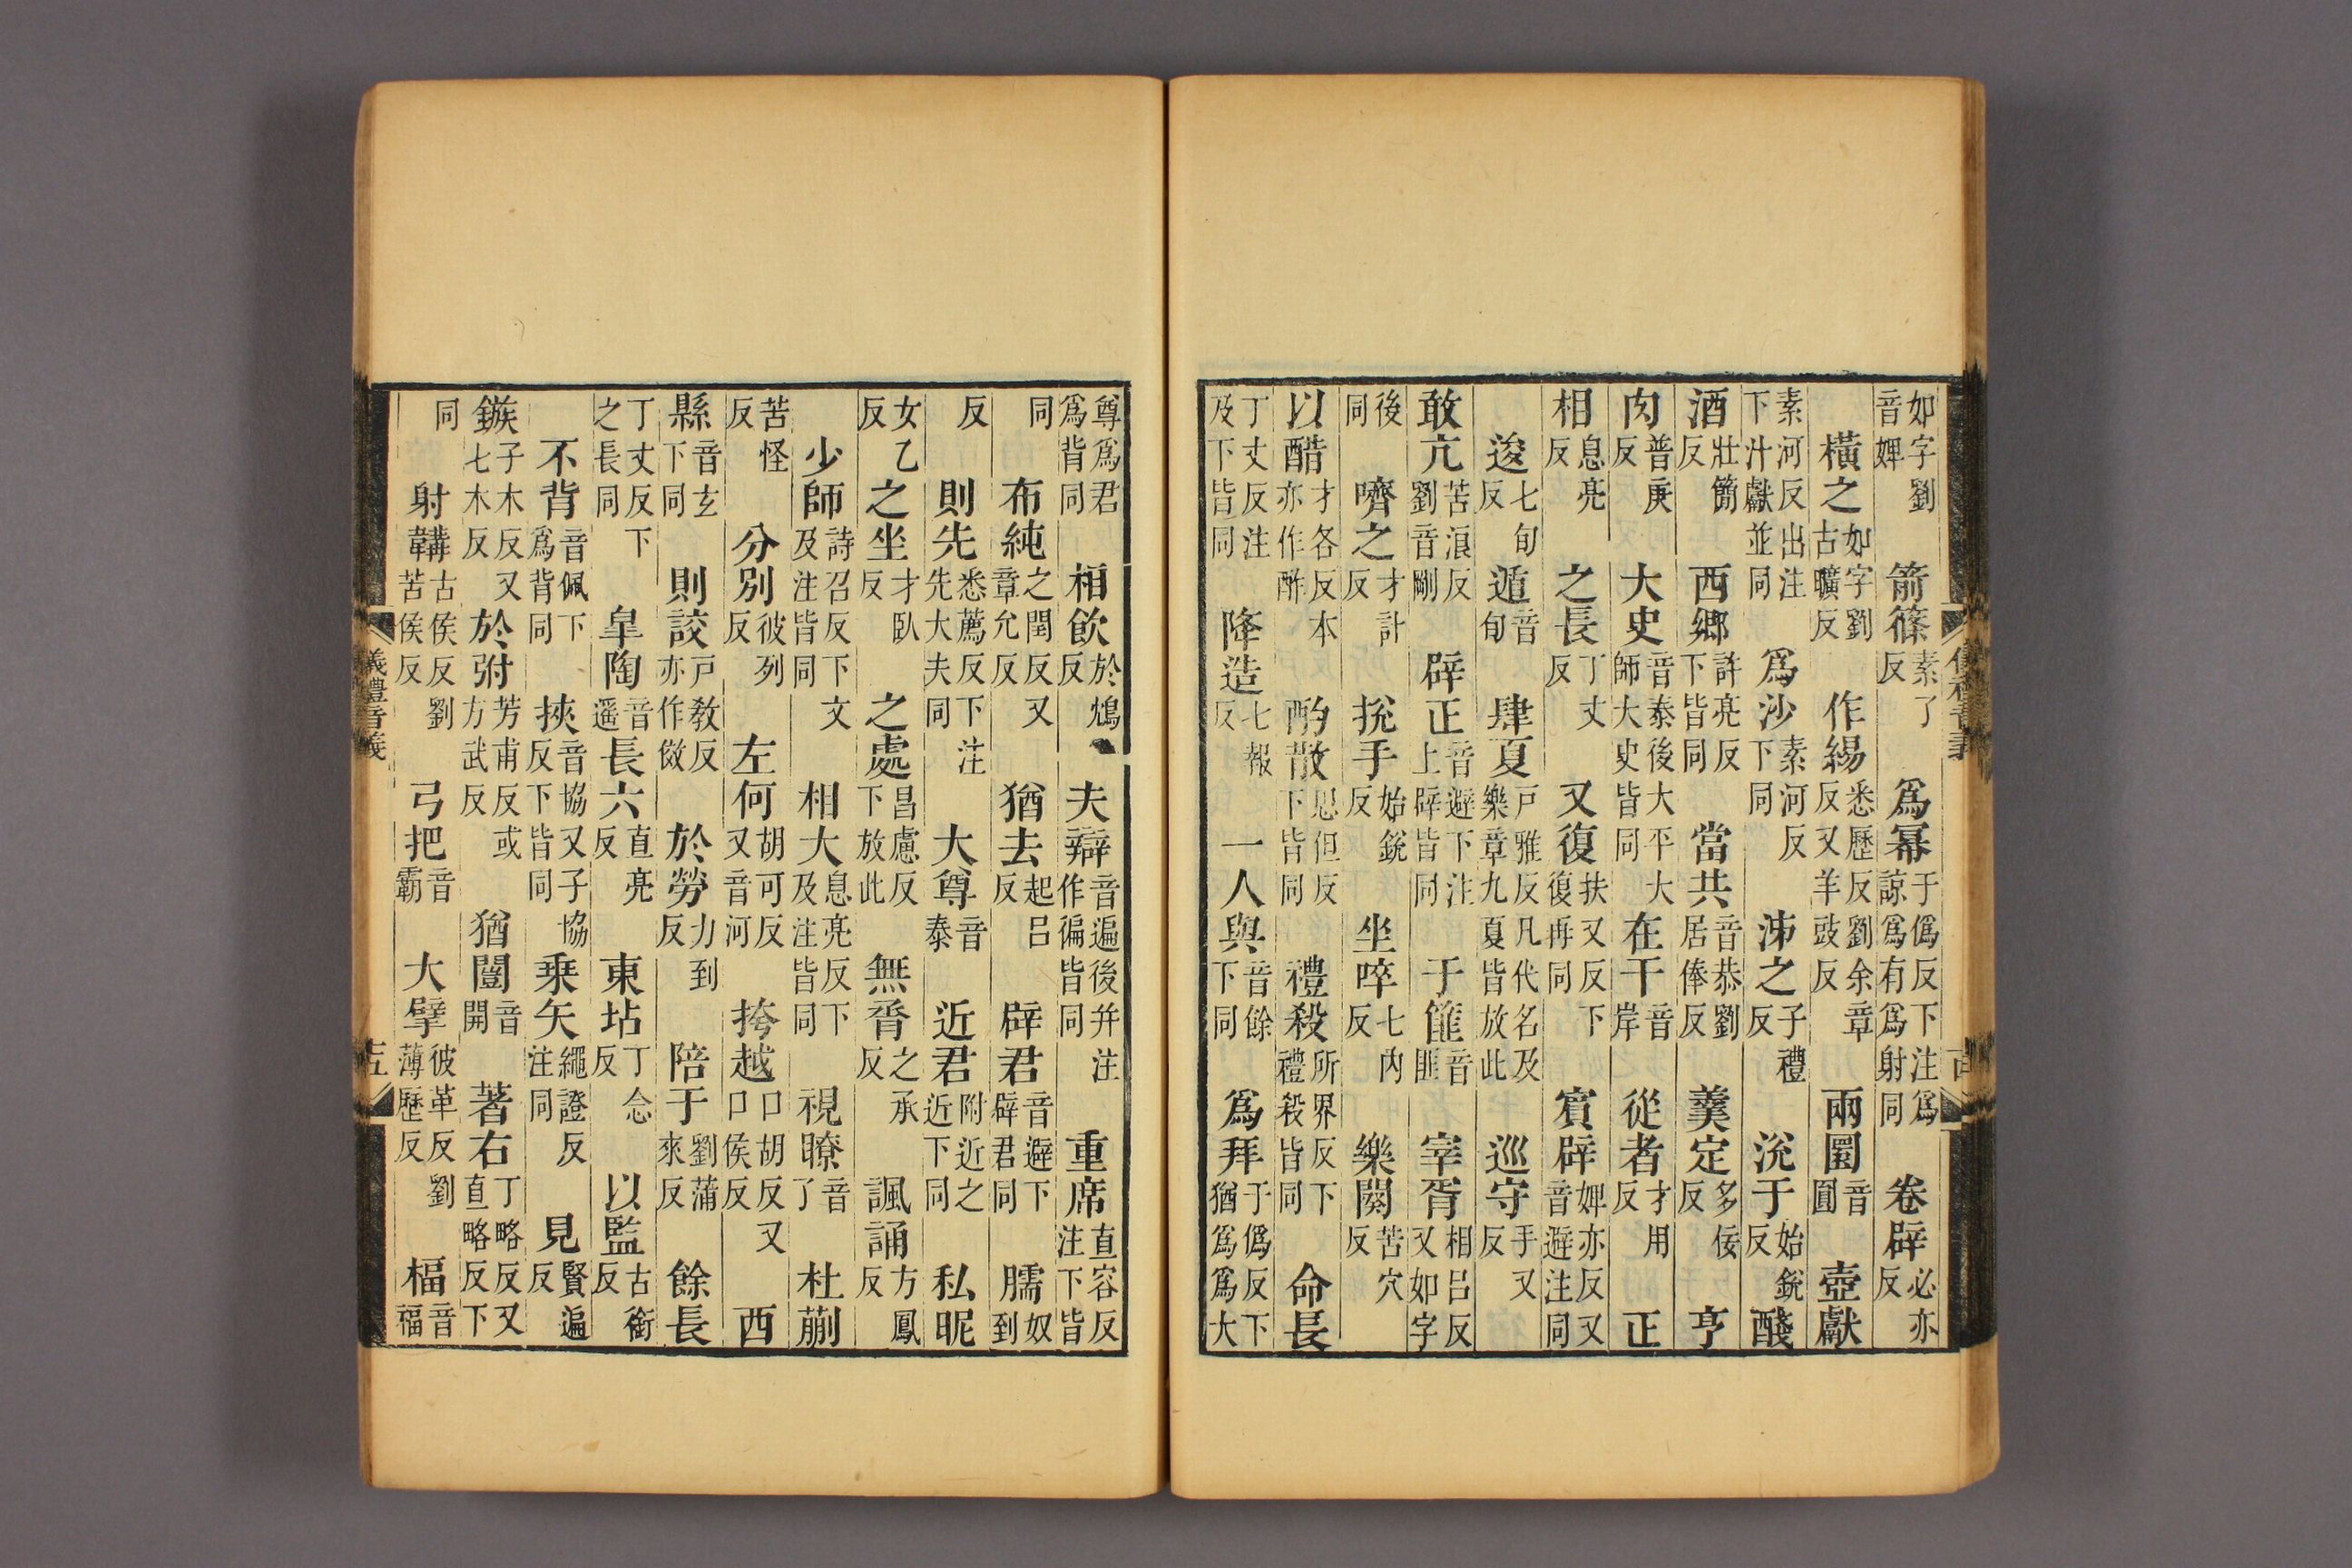 如字劉音婢箭篠素了反爲冪于僞反下注爲諒爲有爲射同卷辟必亦反
橫之如字劉古曠反作緆悉歷反劉余章反又羊豉反兩圜音圓壺獻
素河反出注下汁獻並同爲沙素河反下同泲之子禮反涗于始銳反醆
酒壯簡反西鄉許亮反下皆同當共音恭劉居俸反羹定多佞反亨
肉普庚反大史音泰後大平大師大史皆同在干音岸從者才用反正
相息亮反之長丁丈反又復扶又反下復再同賓辟婢亦反又音避注同
逡七旬反遁音旬肆夏戶雅反凡代名及樂章九夏皆放此巡守手又反
敢亢苦浪反劉音剛辟正音避下注上辟皆同于篚音匪宰胥相呂反又如字
後同嚌之才計反挩手始銳反坐啐七內反樂闋苦穴反
以酷才各反本亦作酢酌散思但反下皆同禮殺所界反下禮殺皆同命長
丁丈反注及下皆同降造七報反一人與音餘下同爲拜于僞反下猶爲爲大
儀禮音義
尊爲君爲背同相飲於鴆反夫辯音遍後幷注作徧皆同重席直容反注下皆
同布純之閏反又章允反猶去起呂反辟君音避下辟君同臑奴到
反則先悉薦反下注先大夫同大尊音泰近君附近之近下同私昵
女乙反之坐才臥反之處昌慮反下放此無脀之承反諷誦方鳳反
少師詩召反下文及注皆同相大息亮反下及注皆同視瞭音了杜蒯
苦怪反分別彼列反左何胡可反又音河挎越口胡反又口侯反西
縣音玄下同則詨戶教反亦作傚於勞力到反陪于劉蒲來反餘長
丁丈反下之長同皐陶音遥長六直亮反東坫丁念反以監古銜反
不背音佩下爲背同挾音協又子協反下皆同乗矢繩證反注同見賢遍反
鏃子木反又七木反於弣芳甫反或方武反猶闓音開著右丁略反又直略反下
同射韝古侯反劉苦侯反弓把音霸大擘彼革反劉薄歷反楅音福
儀禮音義